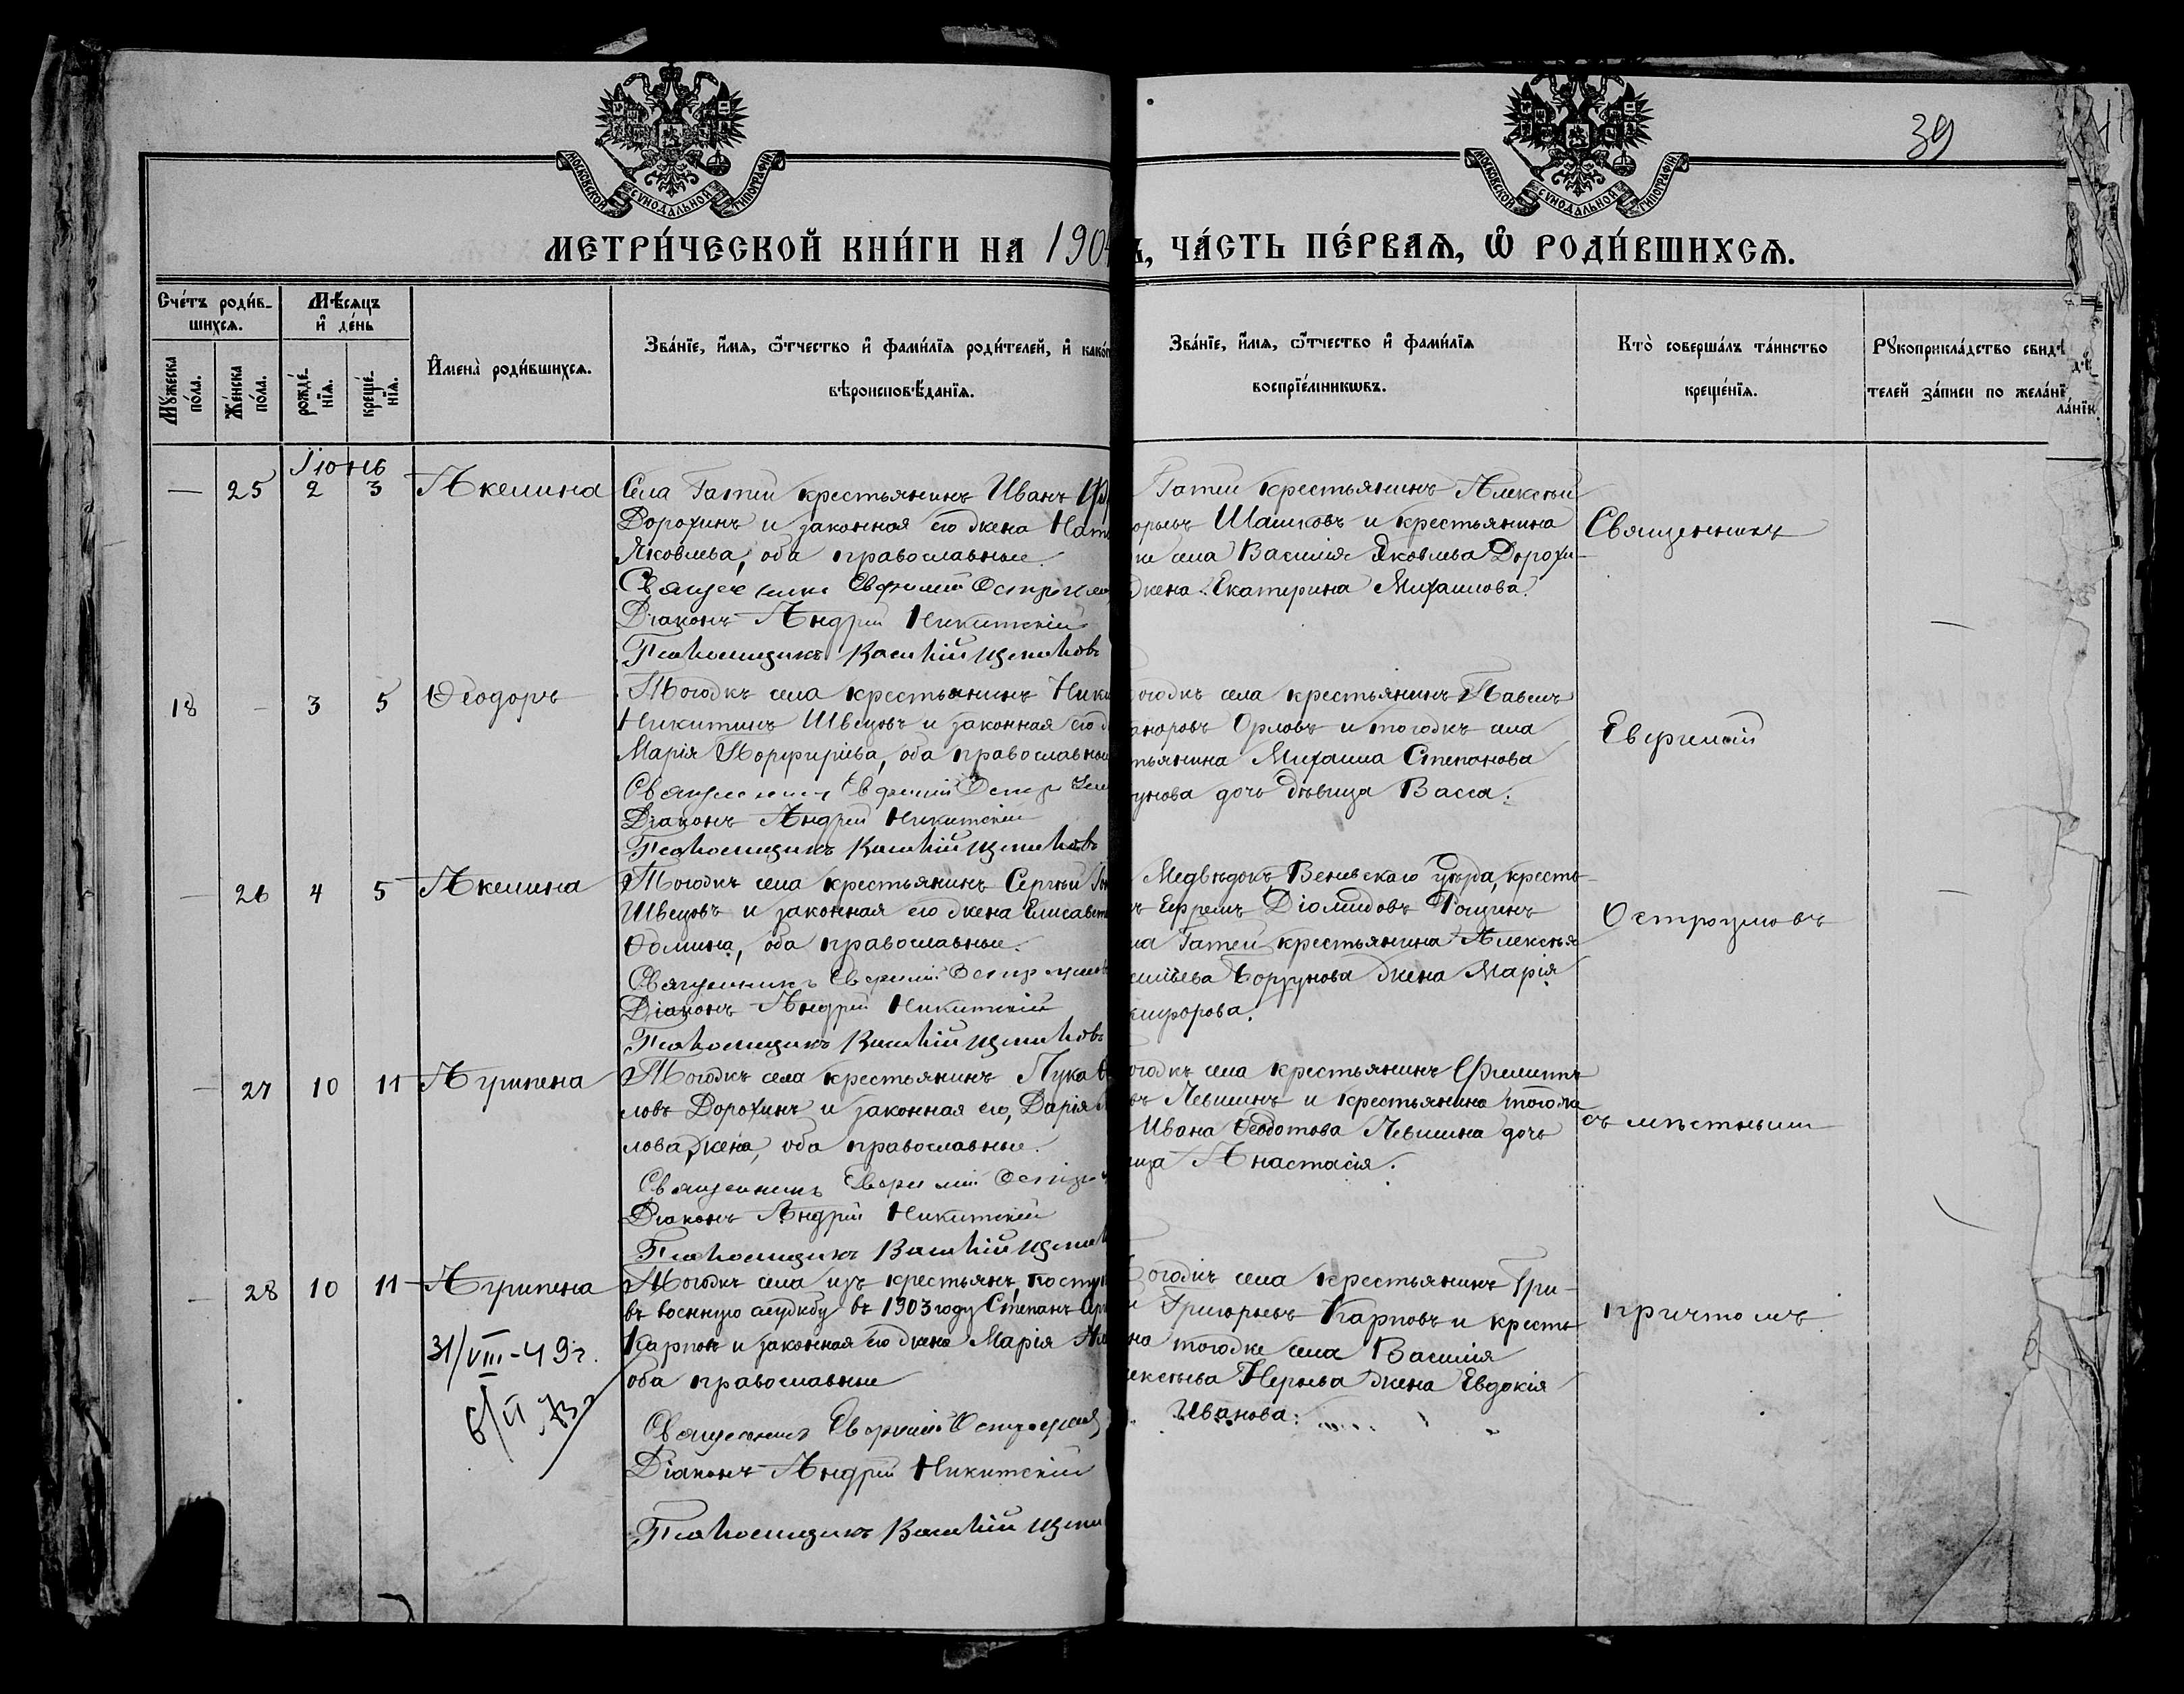 МОСКОВСКОЙ СѴНОДАЛЬНОЙ ТИПОГРАФІИ
МОСКОВСКОЙ СѴНОДАЛЬНОЙ ТИПОГРАФІИ
39
МЕТРИ́ЧЕСКОЙ КНИ́ГИ НА 1904
Ъ, ЧА́СТЬ ПЕ́РВАѦ, Ѡ҆ РОДИ́ВШИХСѦ.
Сче́тъ роди́в-
шихсѧ.
Мѣ́сѧцъ
и҆ де́нь
Мꙋ́жеска по́ла.
Же́нска по́ла.
рожде́-
нїѧ.
креще́-
нїѧ.
И҆мена̀ роди́вшихсѧ.
Зва́нїе, и҆́мѧ, ѻ҆́тчество и҆ фами́лїѧ роди́телей, и҆ како́г
вѣроисповѣ́данїѧ.
Зва́нїе, и҆́мѧ, ѻ҆́тчество и҆ фами́лїѧ
воспрїе́мникѡвъ.
Кто̀ соверша́лъ та́инство
креще́нїѧ.
Рꙋкоприкла́дство свидѣ́
телей за́писи по жела́нї
Іюнь
— 25 2 3 Акелина
Села Гатей крестьянинъ Иванъ
Дорохинъ и законная его жена Ната
Яковлева, оба православные.
Священникъ Евфимій Остроумо
Діаконъ Андрей Никитскій
Псаломщикъ Василій Щегловъ
Гатей крестьянинъ Алексѣй
орьевъ Шашковъ и крестьянина
ки села Василія Яковлева Дорохи-
жена Екатерина Михаилова.
Священникъ
18 – 3 5 Ѳеодоръ
Тогожъ села крестьянинъ Ники
Никитинъ Швецовъ и законная его ж
Марія Порфиріева, оба православные
Священникъ Евфимій Остроумо
Діаконъ Андрей Никитскій
Псаломщикъ Василій Щегловъ
огожъ села крестьянинъ Павелъ
аноровъ Орловъ и тогожъ села
тьянина Михаила Степанова
унова дочь дѣвица Васса.
Евфимій
— 26 4 5 Акелина
Тогожъ села крестьянинъ Сергѣй
Швецовъ и законная его жена Елисавет
Ѳомина, оба православные.
Священникъ Евфимій Остроумовъ
Діаконъ Андрей Никитскій
Псаломщикъ Василій Щегловъ
Медвѣдокъ Веневскаго уѣзда, кресть-
ъ Ефремъ Діомидовъ Рощинъ
ла Гатей крестьянина Алексѣя
силіева Борзунова жена Марія
кифорова.
Остроумовъ
— 27 10 11 Агрипена
Тогожъ села крестьянинъ Лука
ловъ Дорохинъ и законная его, Дарія
лова, жена, оба православные.
Священникъ Евфимій Остро
Діаконъ Андрей Никитскій
Псаломщикъ Василій Щегл
огожъ села крестьянинъ Филиппъ
овъ Левшинъ и крестьянина тогожъ
Ивана Ѳедотова Левшина дочь
ица Анастасія.
съ мѣстнымъ
— 28 10 11 Агрипена
Тогожъ села изъ крестьянъ, посту
въ военную службу въ 1903 году Степанъ
Карповъ и законная его жена Марія
оба православные
Священникъ Евфимій Остроумов
Діаконъ Андрей Никитскій
Псаломщикъ Василій Щегл
огожъ села крестьянинъ Гри-
й Григорьевъ Карповъ и кресть-
на тогоже села Василія
лексѣева жена Евдокія
Иванова.
причтомъ
31/VIII-49г.